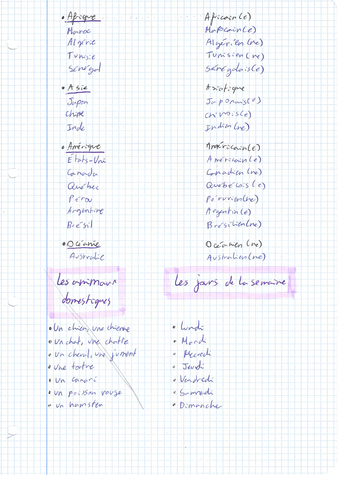 • Afrique Africain(e)
Maroc Marocain(e)
Algérie Algérien(ne)
Tunisie Tunisien(ne)
Sénégal Sénégalais(e)
• Asie Asiatique
Japon Japonais(e)
Chine Chinois(e)
Inde Indien(ne)
• Amérique Américain(e)
États-Uni Américain(e)
Canada Canadien(ne)
Québec Québécois(e)
Pérou Péruvien(ne)
Argentine Argentin(e)
Brésil Brésilien(ne)
• Océanie Océanien(ne)
Australie Australien(ne)
Les animaux domestiques
• Un chien, une chienne
• Un chat, une chatte
• Un cheval, une jument
• Une tortue
• Un canari
• un poisson rouge
• un hamster
Les jours de la semaine
• Lundi
• Mardi
• Mecredi
• Jeudi
• Vendredi
• Samedi
• Dimanche